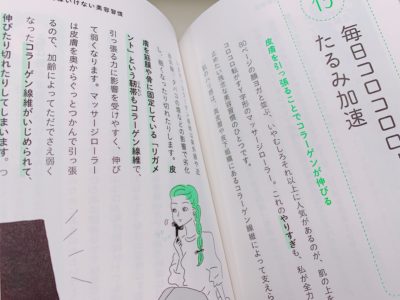 15
毎日コロコロコロ
たるみ加速
皮膚を引っ張ることでコラーゲンが伸びる
80ページの顔ヨガと並ぶ、いやむしろそれ以上に人気があるのが、肌の上を
コロコロ転がすY字形のマッサージローラー。これのやりすぎも、私が全力
美容習慣のひとつです。
皮膚や皮下組織にあるコラーゲン線維によって支えら
はいけない美容習慣
の影響で劣化
し、硬くなったり切れたりします。皮
膚を筋膜や骨に固定している「リガメ
ント」という靭帯もコラーゲン線維で、
引っ張る力に影響を受けやすく、伸び
て弱くなります。マッサージローラー
は皮膚を奥からぐっとつかんで引っ張
るので、加齢によってただでさえ弱く
なったコラーゲン線維がいじめられて、
伸びたり切れたりしてしまいます。つ